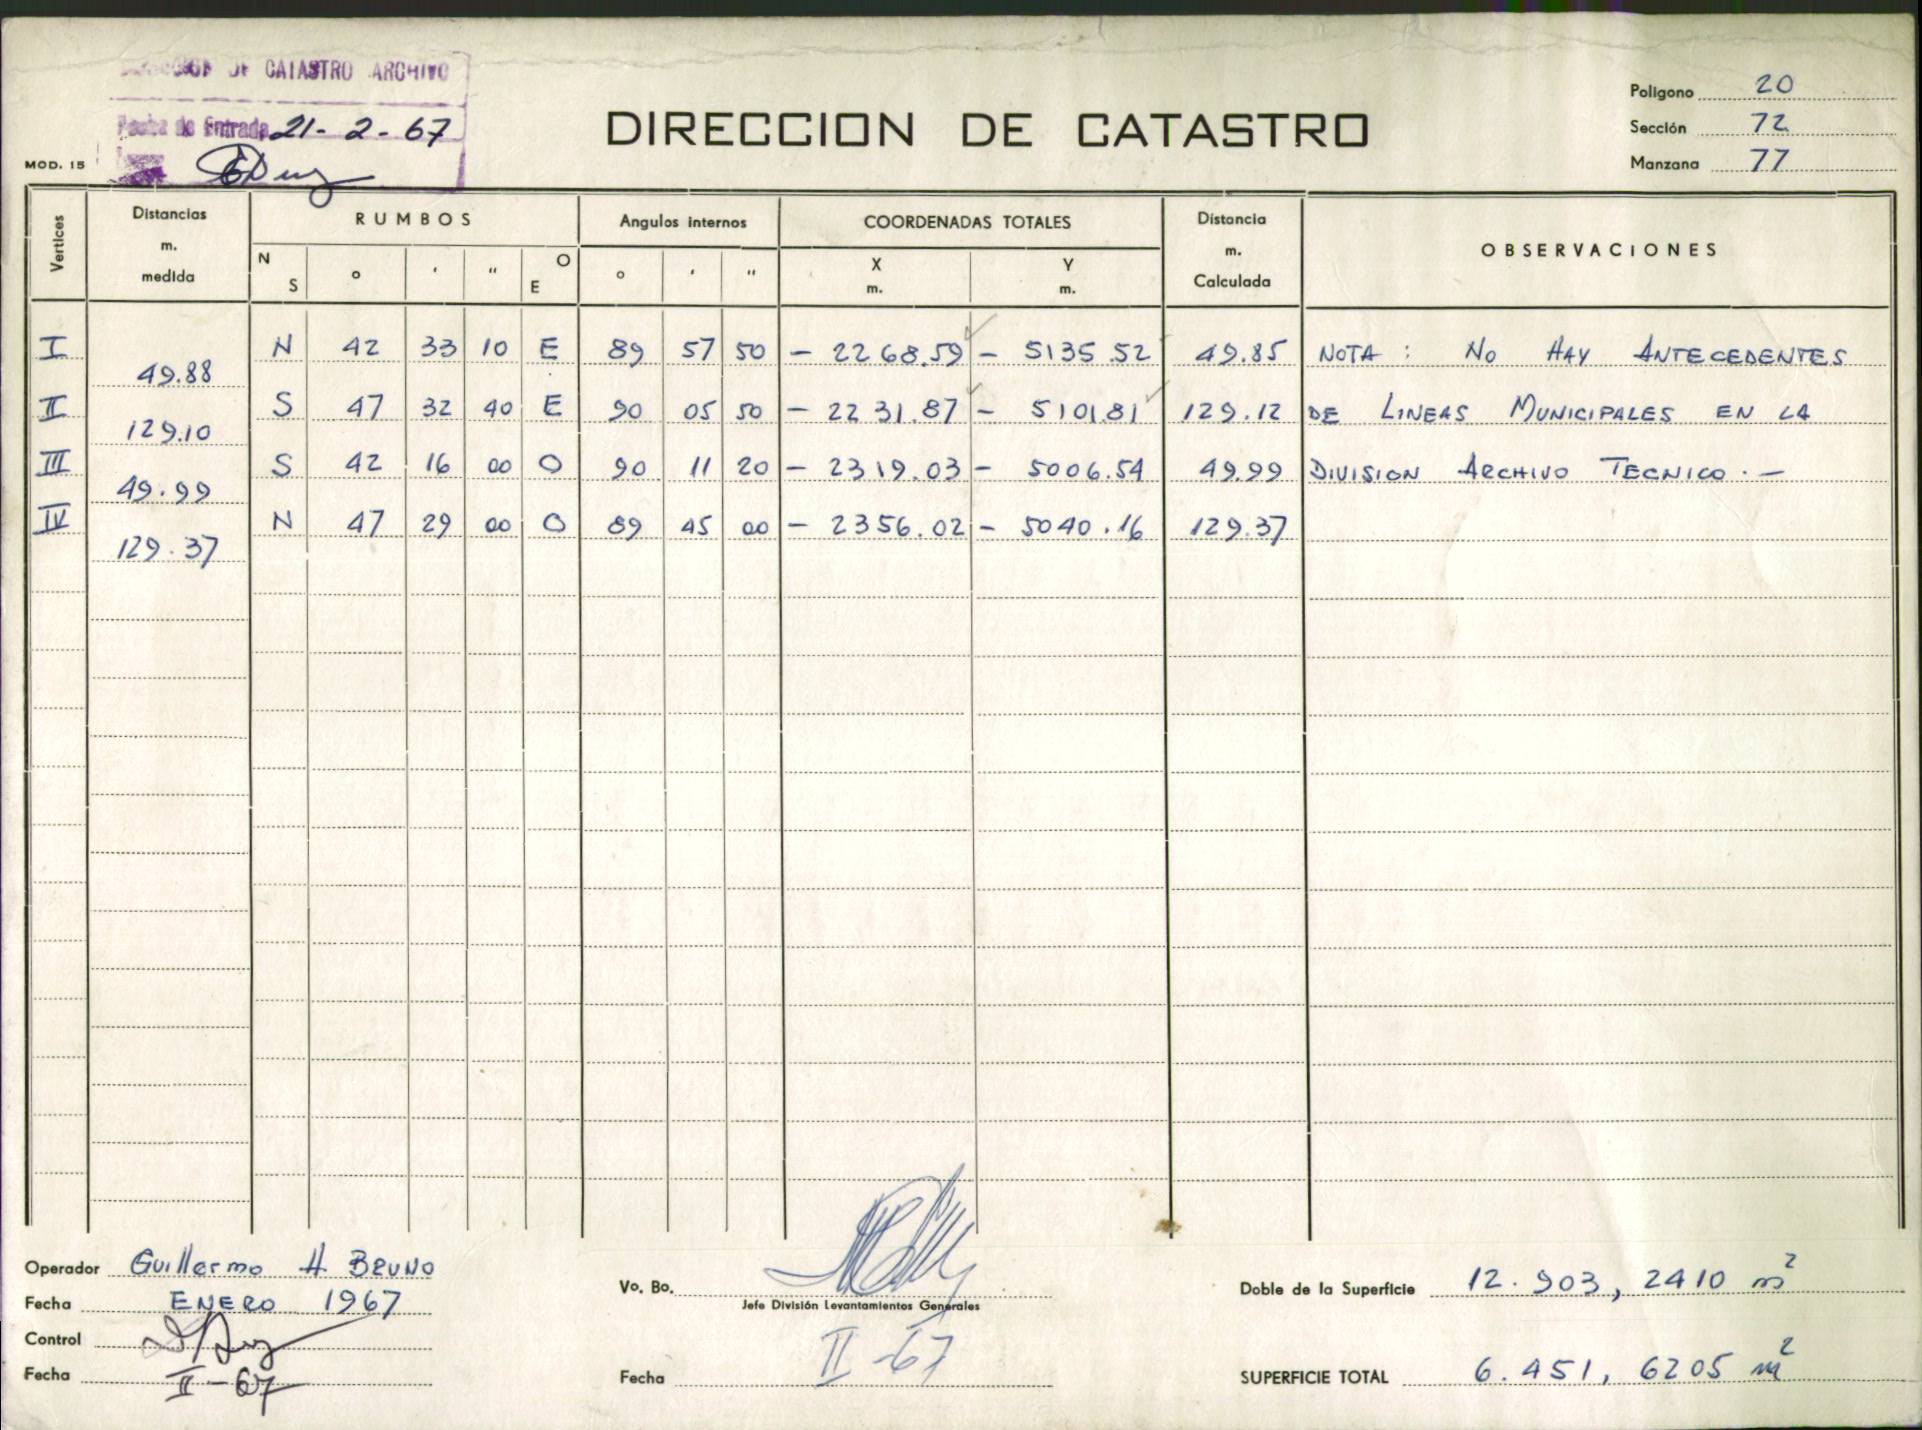 DIRECCION DE CATASTRO ARCHIVO
Fecha de Entrada 21-2-67
MOD. 15
DIRECCION DE CATASTRO
Poligono 20
Sección 72
Manzana 77
Vertices
Distancias m. medida
RUMBOS
N S ° ' " O E
Angulos internos
° ' "
COORDENADAS TOTALES
X m. Y m.
Distancia m. Calculada
OBSERVACIONES
I N 42 33 10 E 89 57 50 - 2268.59 - 5135.52 49.85 NOTA : No HAY ANTECEDENTES
49.88
II S 47 32 40 E 90 05 50 - 2231.87 - 5101.81 129.12 DE LINEAS MUNICIPALES EN LA
129.10
III S 42 16 00 O 90 11 20 - 2319.03 - 5006.54 49.99 DIVISION ARCHIVO TECNICO.-
49.99
IV N 47 29 00 O 89 45 00 - 2356.02 - 5040.16 129.37
129.37
Operador Guillermo H BRUNO
Fecha ENERO 1967
Control
Fecha II-67
Vo. Bo.
Jefe División Levantamientos Generales
Fecha II-67
Doble de la Superficie 12.903,2410 m²
SUPERFICIE TOTAL 6.451,6205 m²